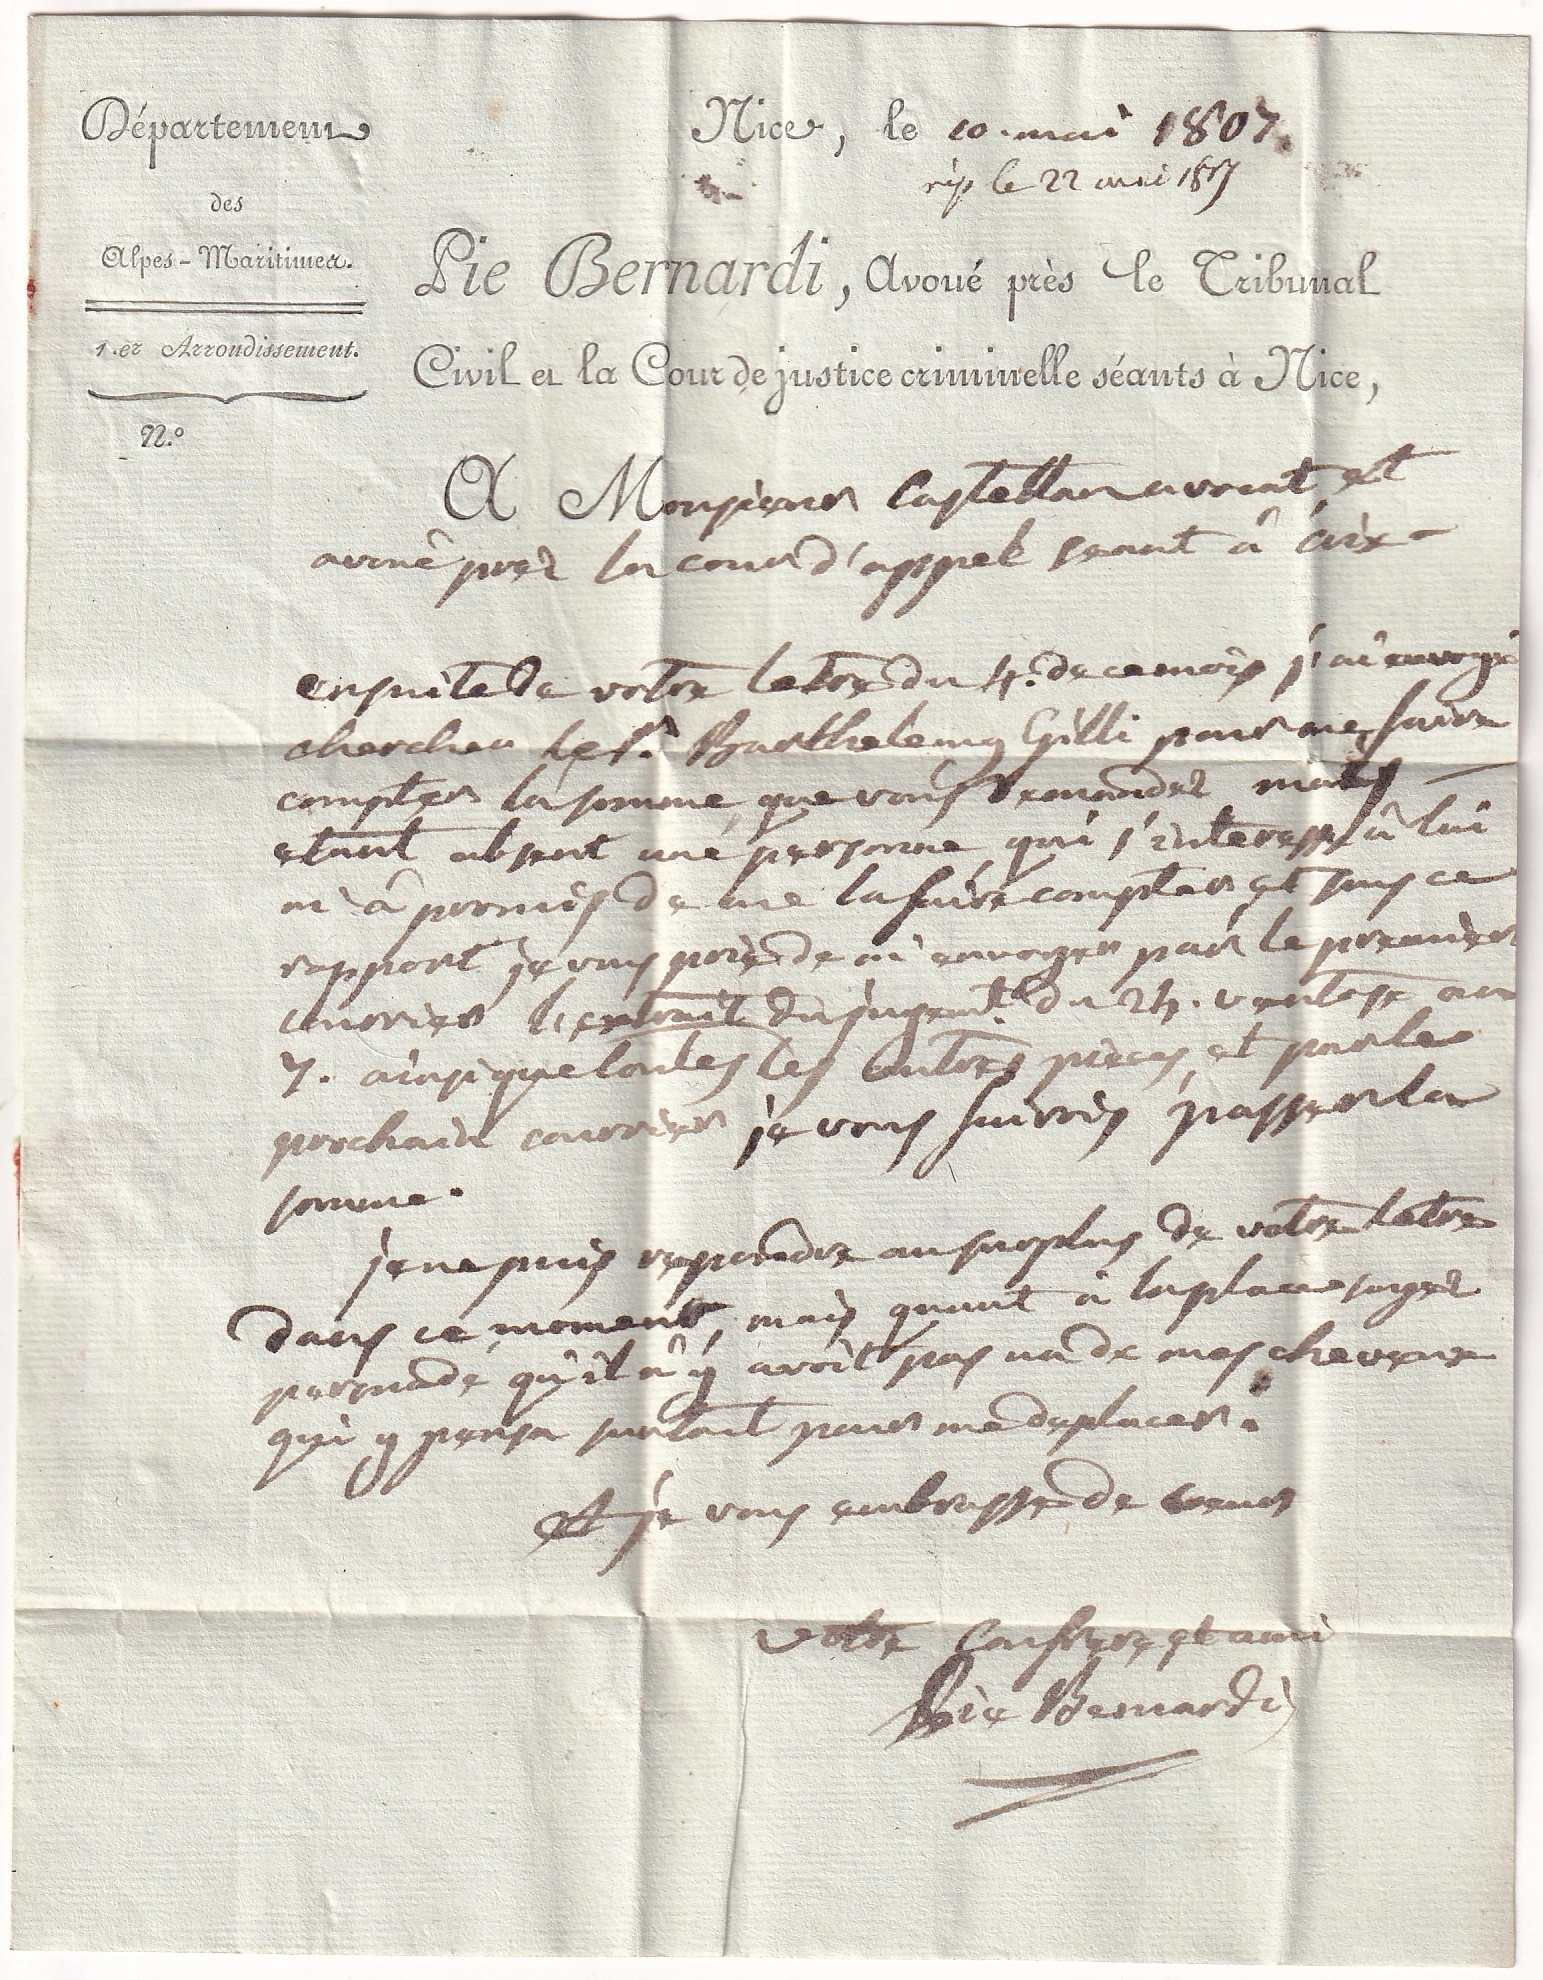 Département
des
Alpes-Maritimes.
1.er Arrondissement.
N.º
Nice, le 10 mai 1807.
rép le 22 mai 1807
Pie Bernardi, Avoué près le Tribunal
Civil et la Cour de justice criminelle séants à Nice,
A Monsieur Castellan avocat et
avoué près la cour d'appel seant â aix
ensuite de votre letre du 4. de ce mois j'ai envoyé
chercher le s.r Barthelemy Gilli pour me faire
compter la somme que vous demandez mais
etant absent une personne qui s'interesse â lui
m'â promis de me la faire compter et sous ce
rapport je vous prie de m'envoyer par le premier
courrier l'extrait du jugem.t du 24. ventose an
7. ainsi que toutes les autres pieces et par le
prochain courrier je vous fairois passer la
somme.
je ne puis repondre au surplus de votre letre
dans ce moment, mais quant â la place soyez
persuadé qu'il n'y avoit pas un de mes cheveux
qui y pensa surtout pour me deplacer.
et je vous embrasse de coeur
votre Confrere et ami
Pie Bernardi